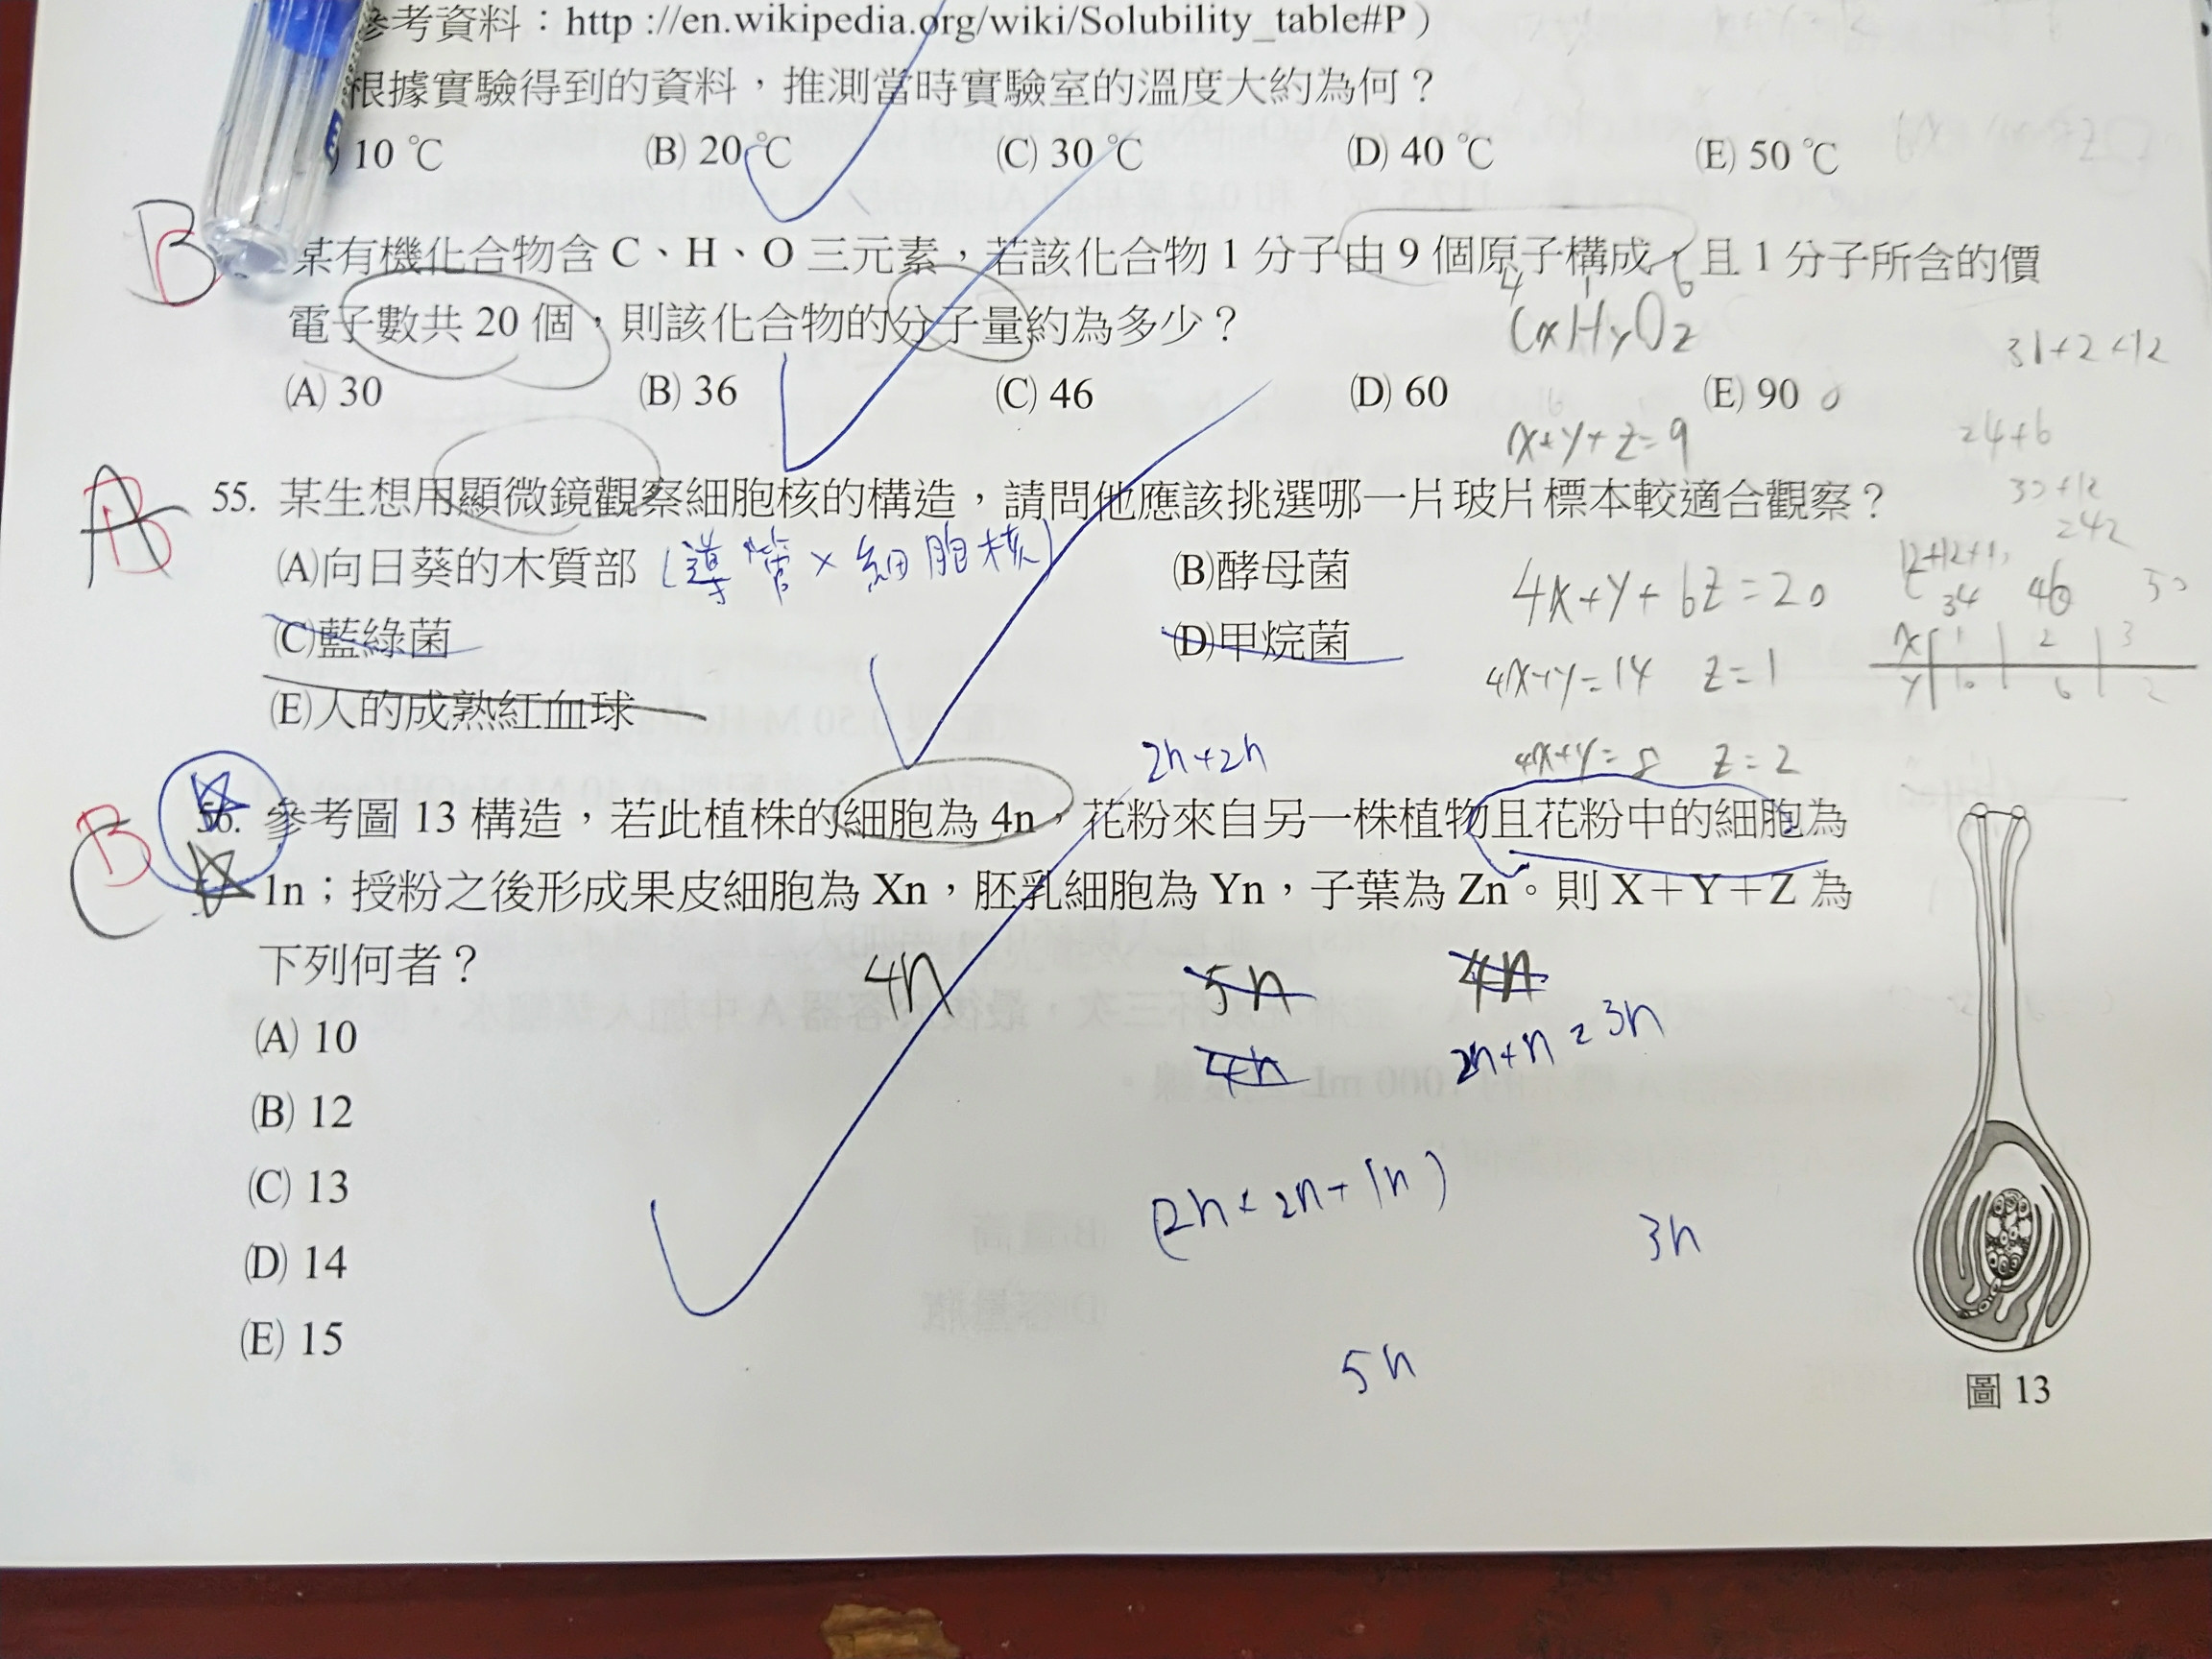 參考資料：http ://en.wikipedia.org/wiki/Solubility_table#P )
根據實驗得到的資料，推測當時實驗室的溫度大約為何？
) 10 ℃ (B) 20 ℃ (C) 30 ℃ (D) 40 ℃ (E) 50 ℃
B
某有機化合物含 C、H、O 三元素，若該化合物 1 分子由 9 個原子構成，且 1 分子所含的價
電子數共 20 個，則該化合物的分子量約為多少？
4 1 6
CxHyOz
(A) 30 (B) 36 (C) 46 (D) 60 (E) 90
x+y+z=9
24+6
A
B
55. 某生想用顯微鏡觀察細胞核的構造，請問他應該挑選哪一片玻片標本較適合觀察？
(A)向日葵的木質部 (導管×細胞核) (B)酵母菌
4x+y+6z=20
34 46
(C)藍綠菌 (D)甲烷菌
4x+y=14 z=1
x 1 2 3
y 10 6 2
(E)人的成熟紅血球
2n+2n
4x+y=8 z=2
B
56. 參考圖 13 構造，若此植株的細胞為 4n，花粉來自另一株植物且花粉中的細胞為
1n；授粉之後形成果皮細胞為 Xn，胚乳細胞為 Yn，子葉為 Zn。則 X＋Y＋Z 為
下列何者？
4n 5n 4n
4n 2n+n=3n
(A) 10
(B) 12
(C) 13
(2n+2n+1n)
3n
(D) 14
(E) 15
5n
圖 13